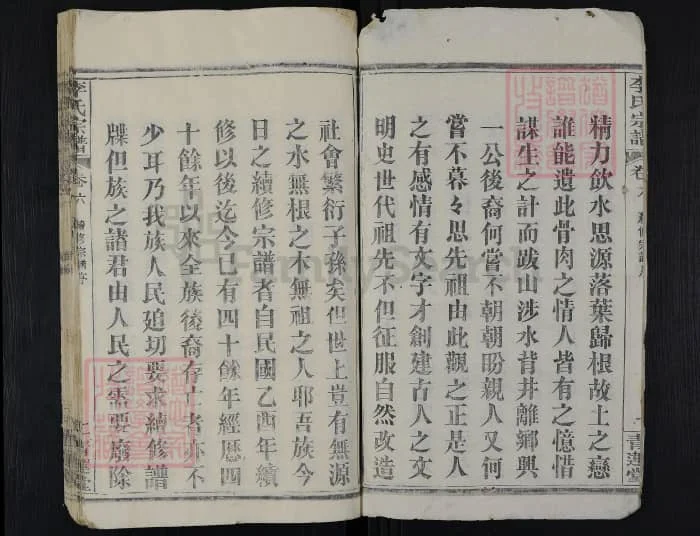 李氏宗譜
卷六
青蓮堂
精力飲水思源落葉歸根故土之戀
誰能遺此骨肉之情人皆有之憶惜
謀生之計而跋山涉水背井離鄉與
一公後裔何嘗不朝朝盼親人又何
嘗不暮々思先祖由此觀之正是人
之有感情有文字才創建古人之文
明史世代祖先不但征服自然改造
社會繁衍子孫矣但世上豈有無源
之水無根之木無祖之人耶吾族今
日之續修宗譜者自民國乙酉年續
修以後迄今已有四十餘年經歷四
十餘年以來全族後裔存亡者亦不
少耳乃我族人民迫切要求續修譜
牒但族之諸君由人民之需要廢除
李氏宗譜
卷六
續修宗譜序
青蓮堂
FamilySearch